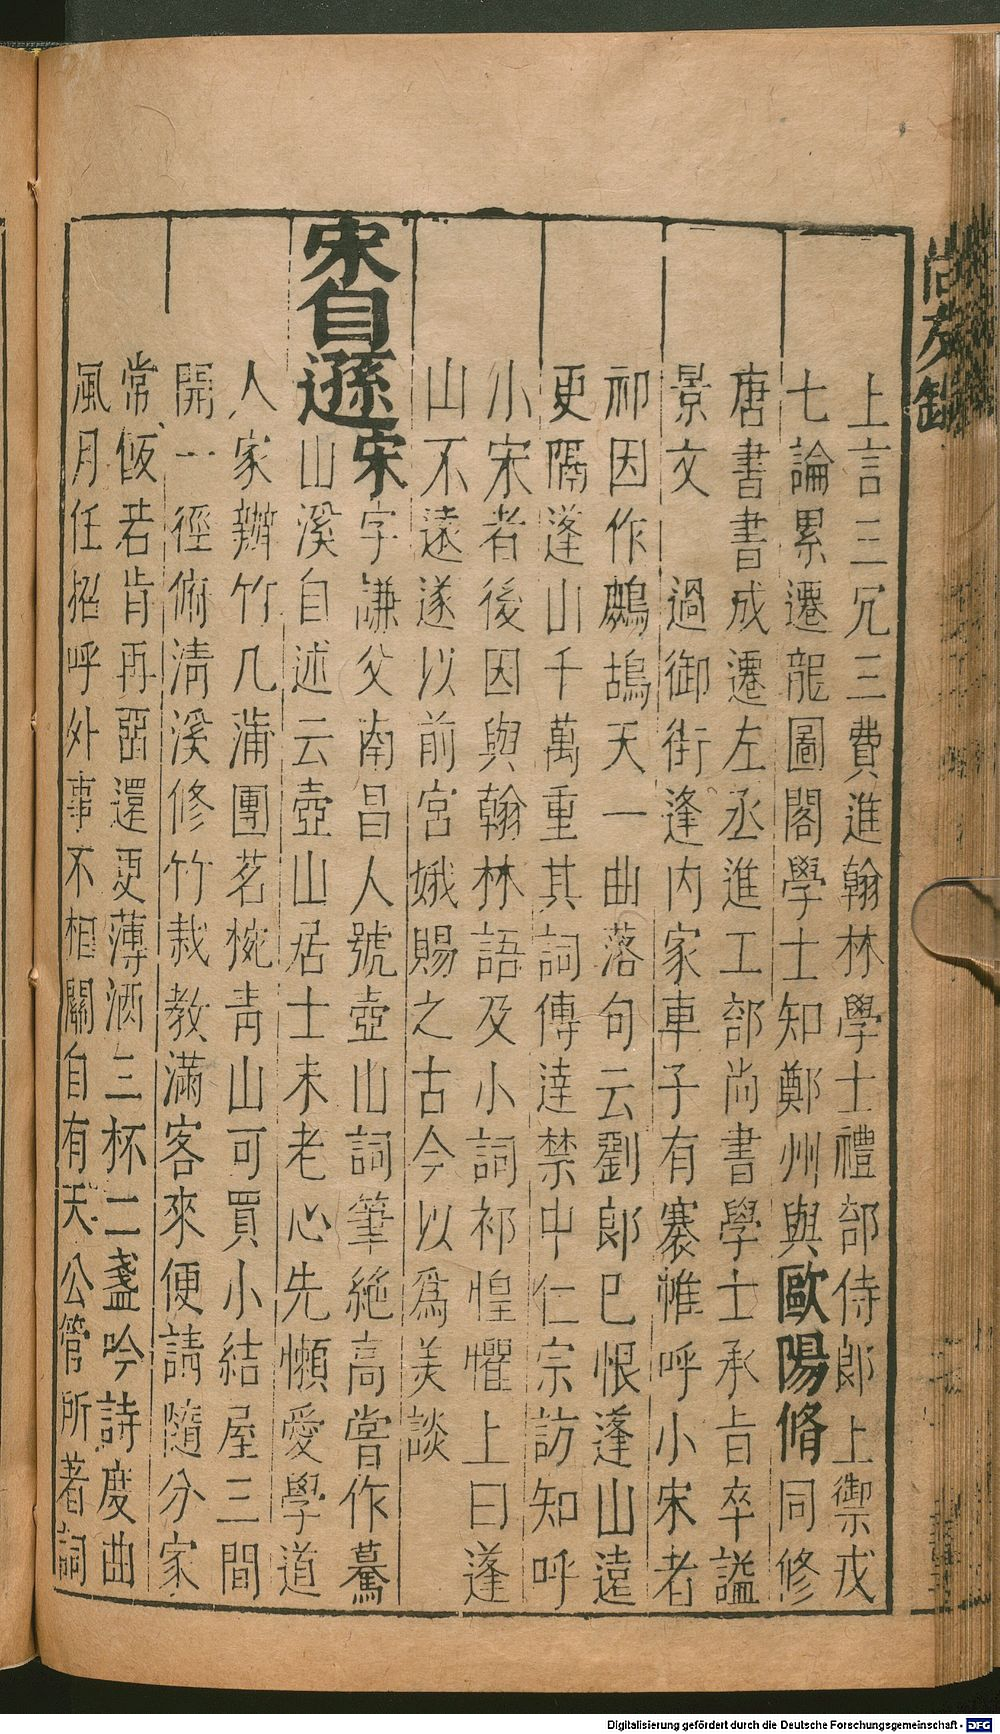 尚友錄
上言三冗三費進翰林學士禮部侍郎上禦戎
七論累遷龍圖閣學士知鄭州與歐陽脩同修
唐書書成遷左丞進工部尚書學士承旨卒謚
景文 過御街逢内家車子有褰帷呼小宋者
祁因作鷓鴣天一曲落句云劉郎巳恨蓬山遠
更隔蓬山千萬重其詞傳達禁中仁宗訪知呼
小宋者後因與翰林語及小詞祁惶懼上曰蓬
山不遠遂以前宮娥賜之古今以爲美談
宋自遜宋字謙父南昌人號壺山詞筆絶高嘗作驀
山溪自述云壺山居士未老心先懶愛學道
人家辦竹几蒲團茗椀青山可買小結屋三間
開一徑俯清溪修竹栽教滿客來便請隨分家
常飯若肯再畱還更薄酒三杯二盞吟詩度曲
風月任招呼外事不相關自有天公管所著詞
Digitalisierung gefördert durch die Deutsche Forschungsgemeinschaft - DFG